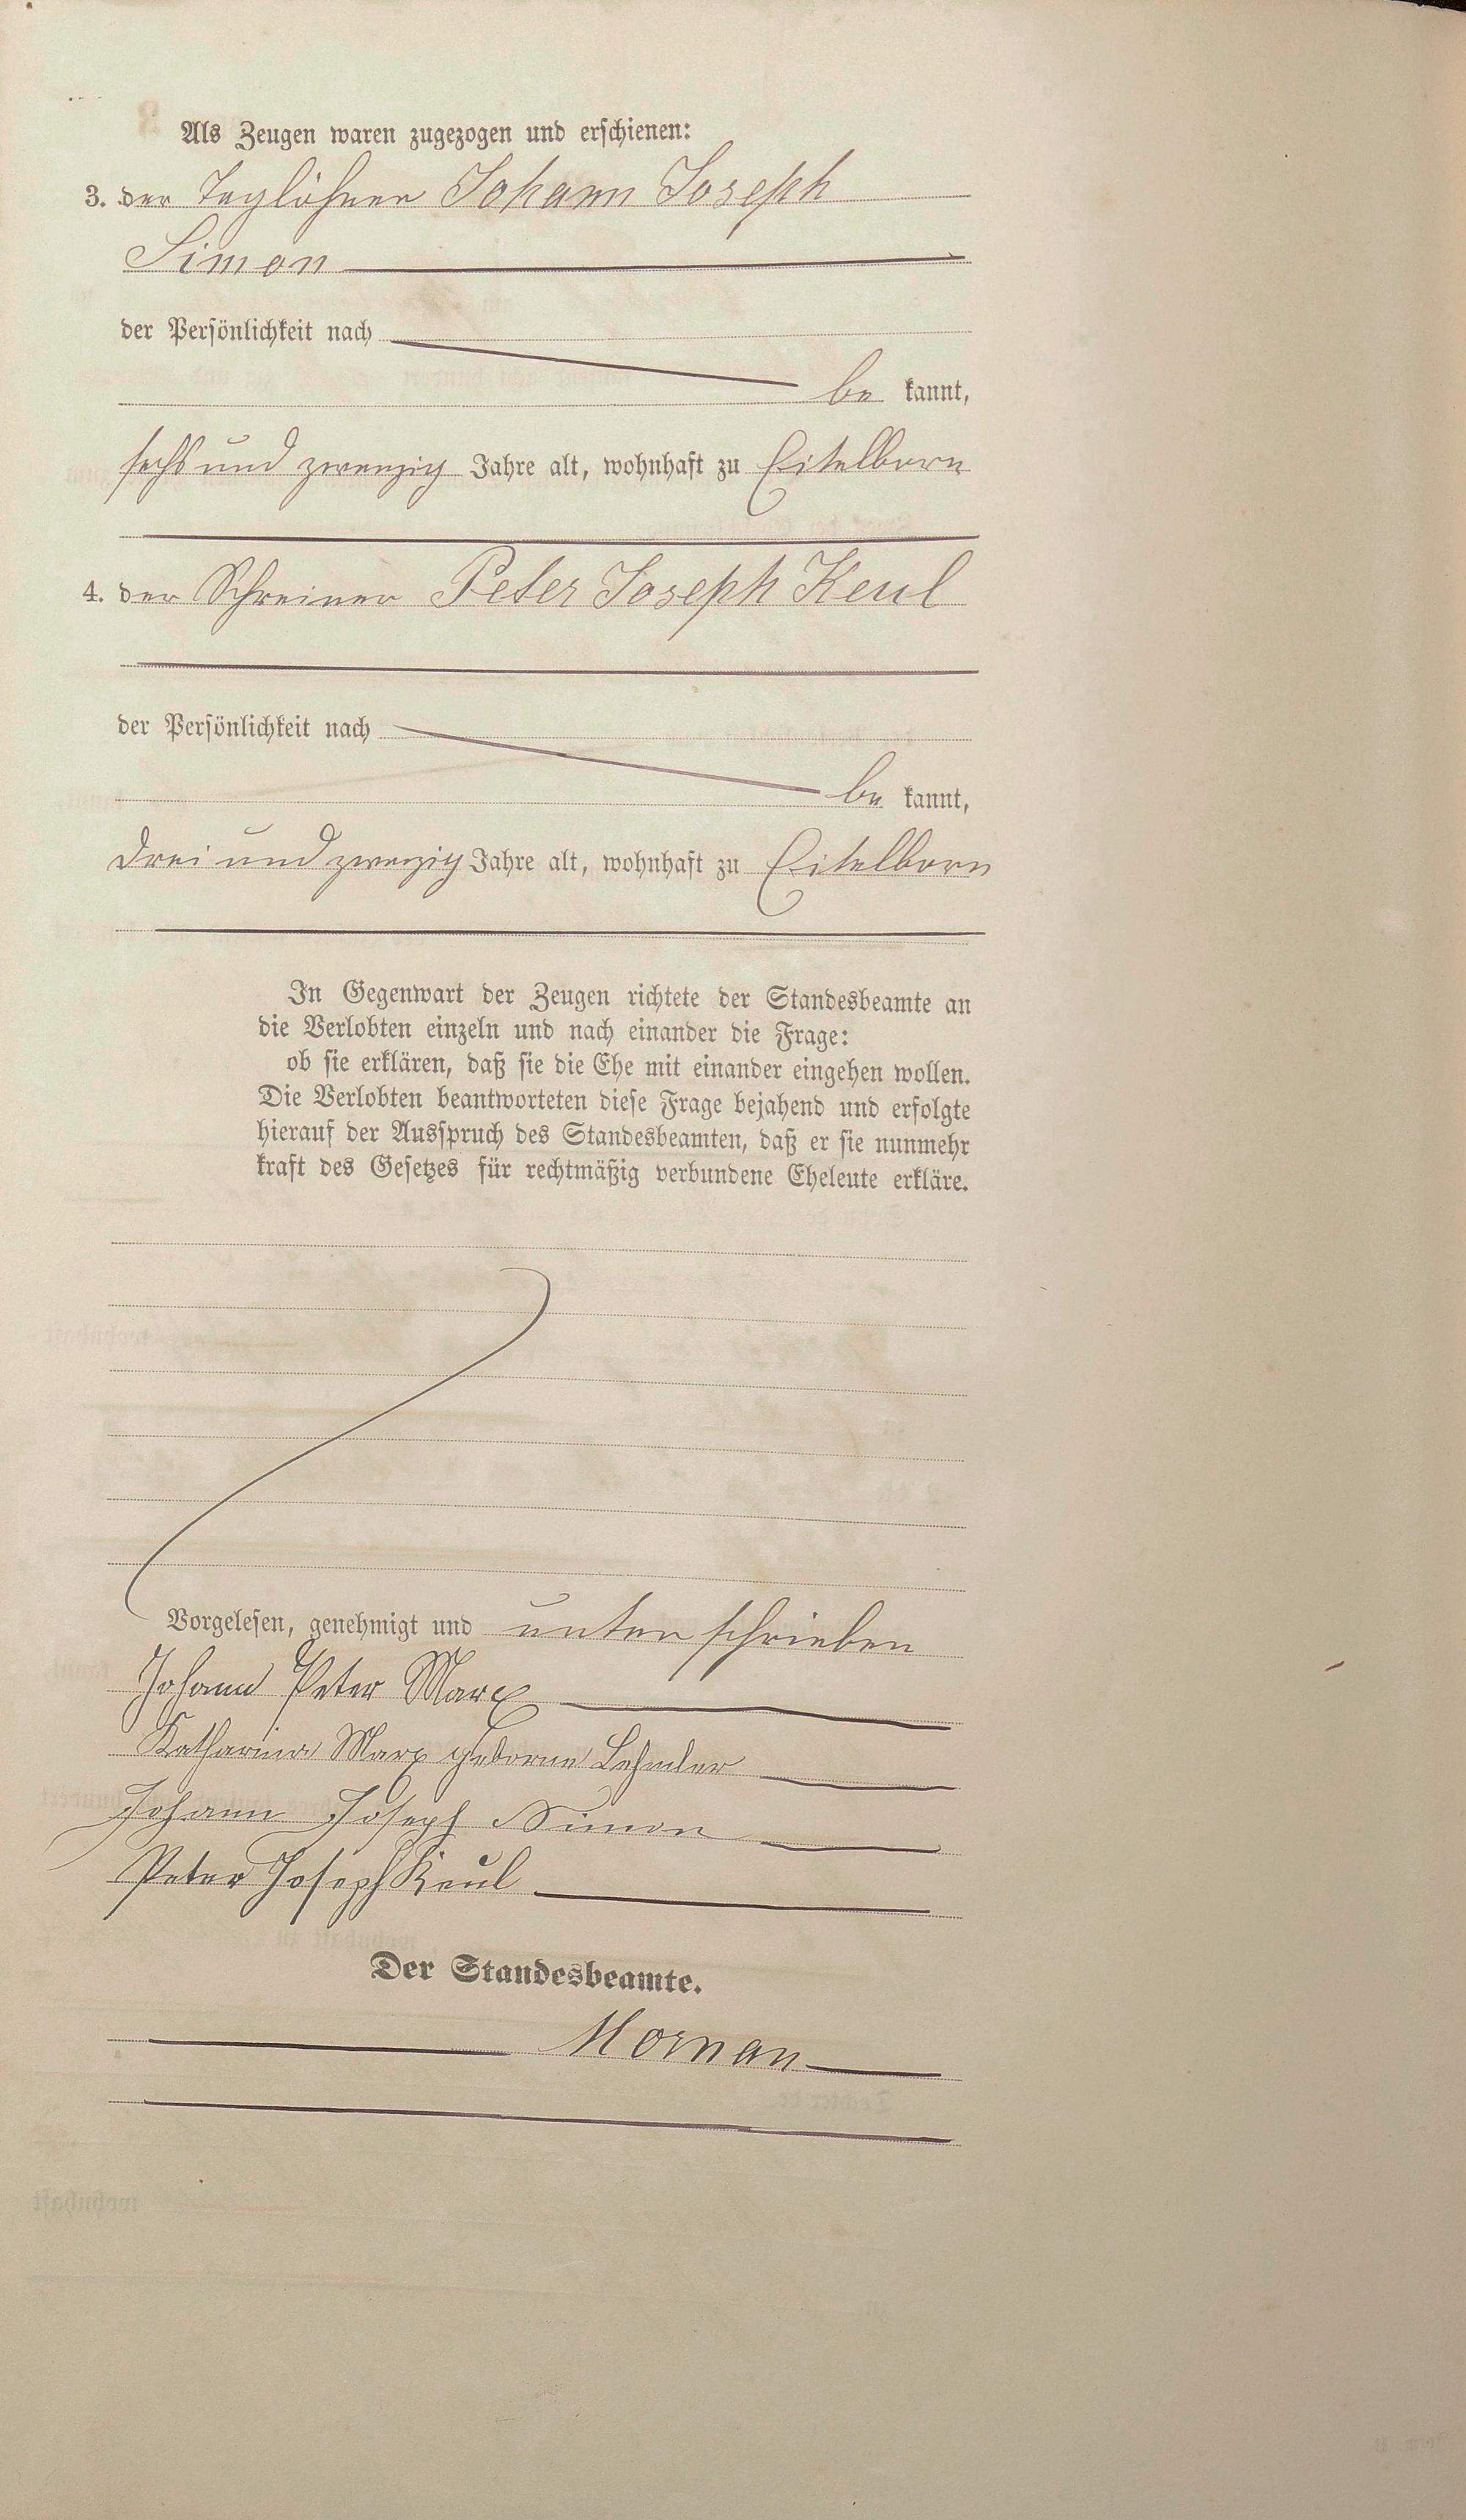 Als Zeugen waren zugezogen und erschienen:
3. der Taglöhner Johann Joseph
Simon
der Persönlichkeit nach
be kannt,
sechs und zwanzig Jahre alt, wohnhaft zu Eitelborn
4. der Schreiner Peter Joseph Keul
der Persönlichkeit nach
be kannt,
drei und zwanzig Jahre alt, wohnhaft zu Eitelborn
In Gegenwart der Zeugen richtete der Standesbeamte an
die Verlobten einzeln und nach einander die Frage:
ob sie erklären, daß sie die Ehe mit einander eingehen wollen.
Die Verlobten beantworteten diese Frage bejahend und erfolgte
hierauf der Ausspruch des Standesbeamten, daß er sie nunmehr
kraft des Gesetzes für rechtmäßig verbundene Eheleute erkläre.
Vorgelesen, genehmigt und unterschrieben
Johann Peter Marx
Katharina Marx geborne Lehmler
Johann Joseph Simon
Peter Joseph Keul
Der Standesbeamte.